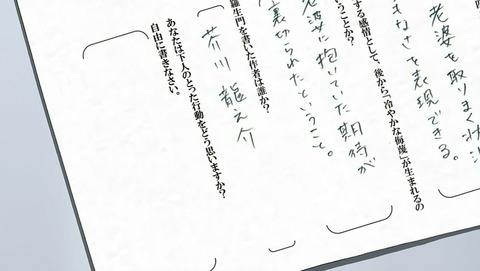 老婆を取りまく状
きなさを表現できる。
する感情として、後から「冷やかな侮蔑」が生まれるの
いうことか？
老婆に抱いていた期待が
裏切られたということ。
羅生門を書いた作者は誰か？
芥川 龍之介
あなたは下人のとった行動をどう思いますか？
自由に書きなさい。